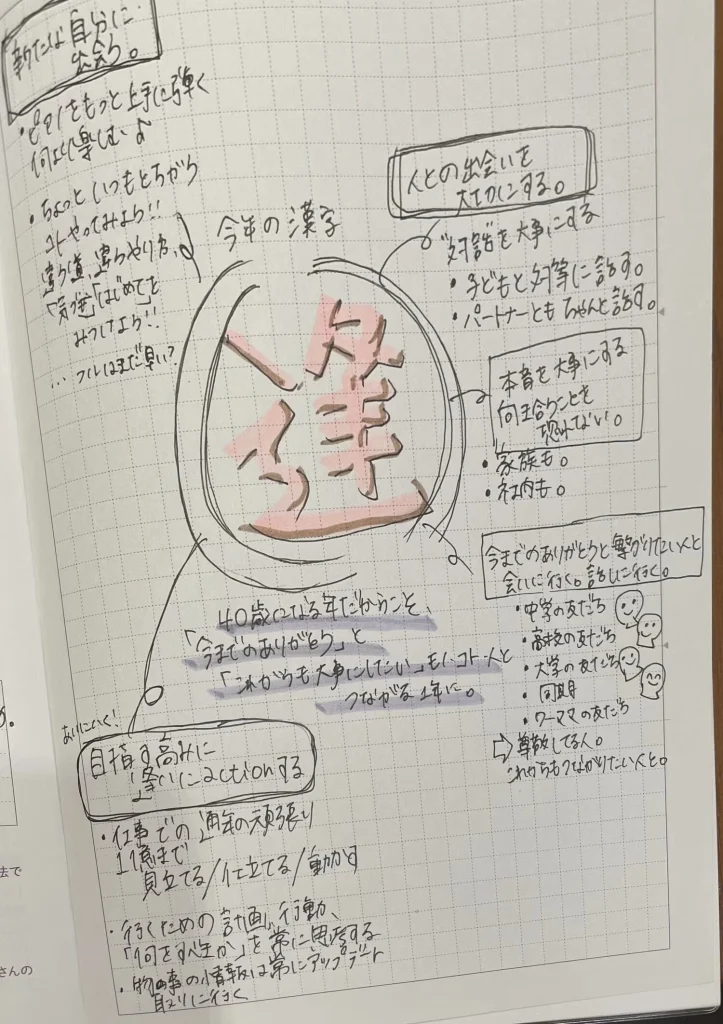 新たな自分に
出会う。
・ピアノをもっと上手に弾く
何より楽しむ♪
・ちょっといつもとちがう
コトやってみよう!!
違う道、違うやり方、
「はじめて」を
みつけよう!!
…フルはまだ早い?
今年の漢字
逢
人との出会いを
大切にする。
"対話"を大事にする
・子どもと対等に話す。
・パートナーともちゃんと話す。
本音を大事にする
向き合うことを
恐れない。
・家族も。
・社内も。
今までのありがとうと繋がりたい人と
会いに行く。話しに行く。
・中学の友だち
・高校の友だち
・大学の友だち
・同期
・ワーママの友だち
⇨尊敬してる人。
これからもつながりたい人と。
40歳になる年だからこそ、
「今までのありがとう」と
「これからも大事にしたい」モノ・コト・人と
つながる1年に。
あいにいく!
目指す高みに
「逢い」にactionする
・仕事での通年の頑張り
1億まで
見立てる/仕立てる/動かす
・行くための計画、行動、
「何をすべきか」を常に思考する
・物事の情報は常にアップデート
取りに行く
法で
さんの